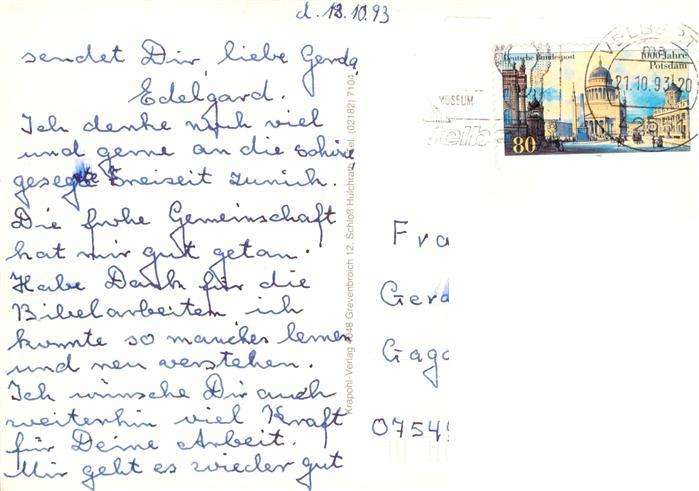 d. 12.10.93
sendet Dir, liebe Gerda,
Edelgard.
Ich denke noch viel
und gerne an die schöne
Freizeit zurück.
Die frohe Gemeinschaft
hat mir gut getan.
Habe Dank für die
Bibelarbeiten ich
konnte so manches lernen
und neu verstehen.
Ich wünsche Dir auch
weiterhin viel Kraft
für Deine Arbeit.
Mir geht es wieder gut
Krapohl-Verlag 4048 Grevenbroich 12, Schloß Hülchrath, Tel. (02182) 7104
MUSEUM
Deutsche Bundespost
1000 Jahre
Potsdam
80
VELBERT
21.10.93-20
Fra
Gerd
Gaga
0754